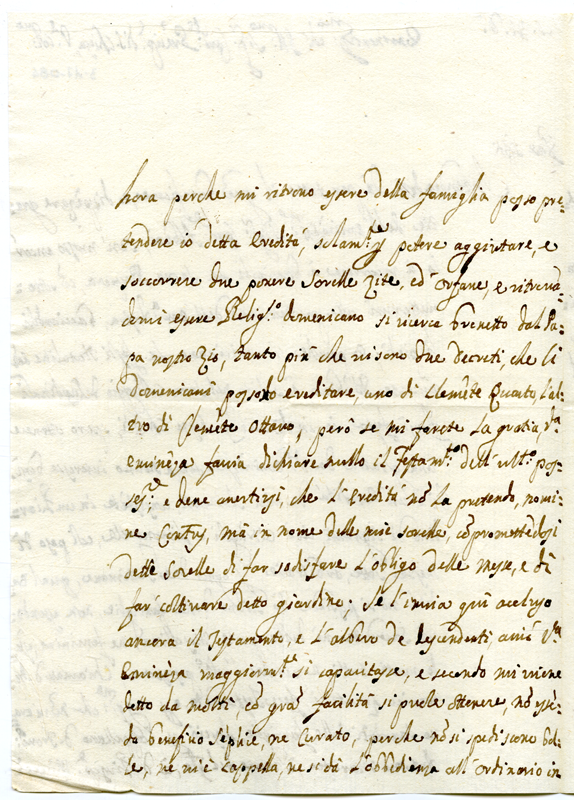 hora perche mi ritrouo essere della famiglia posso pre-
tendere io detta eredità, solam.te p potere aggiutare, e
soccorrere due pouere sorelle zite, ed orfane, e ritrouã-
demi essere Relig.so domenicano si ricerca breuetto dal Pa-
pa nostro Zio, tanto più che ui sono due decreti, che li
domenicani possono ereditare, uno di Clemẽte Quarto, l'al-
tro di Clemẽte Ottauo, però se mi farete la gratia, V.ra
eminẽza faria dichiare nullo il Testam.to dell'ult.o pos-
ses.re e deue auertirsi, che l'eredità nõ la pretendo, nomi-
ne Conũs, mà in nome delle mie sorelle, cõpromettẽdosi
dette sorelle di far sodisfare l'obligo delle messe, e di
far coltiuare detto giardino; Se l'inuia quì accluso
ancora il Testamento, e l'albero de descendenti, acciò V.ra
Eminẽza maggiorm.te si capacitasse, e secondo mi uiene
detto da molti cõ grã facilità si puole ottenere, nõ essẽ-
do beneficio Sẽplice, ne Curato, perche nõ si spediscono bol-
le, ne ui è cappella, ne si dà l'obbidienza all'ordinario in